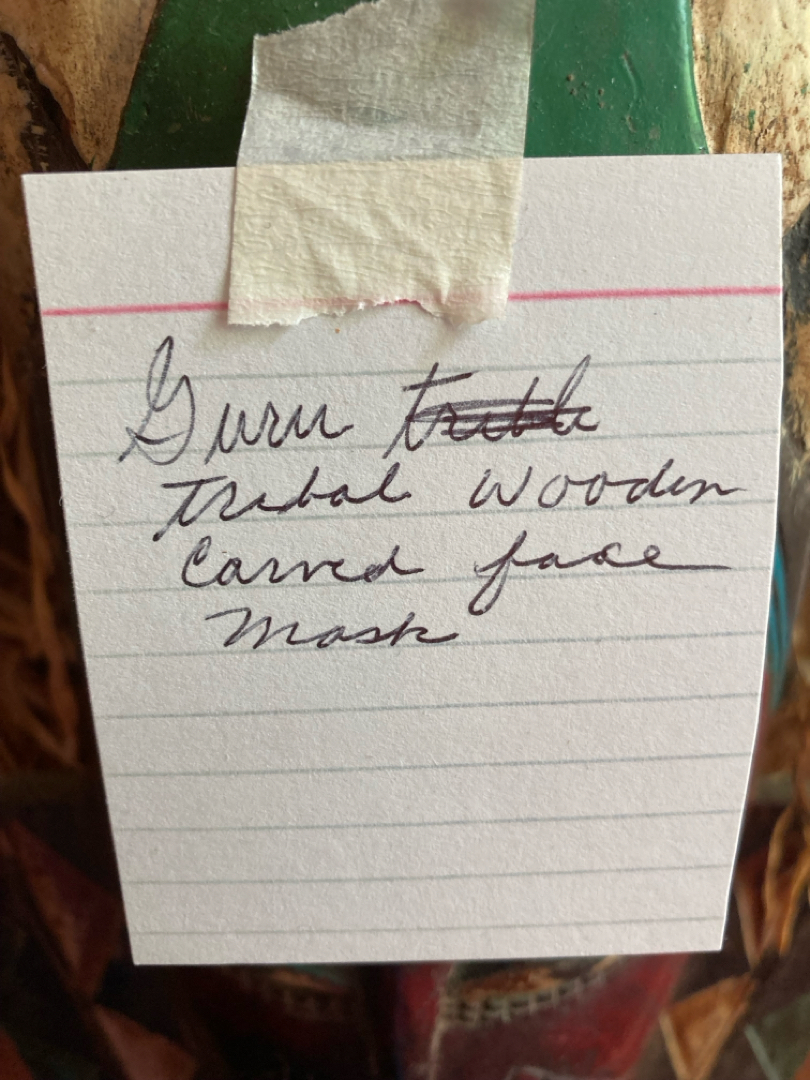 Guru
Tribal wooden
Carved face
Mask